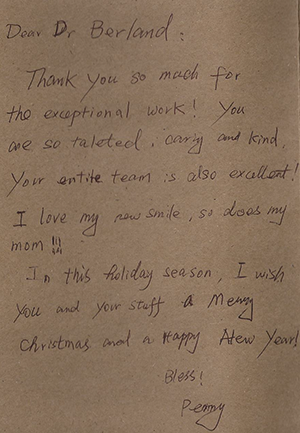 Dear Dr Berland:
Thank you so much for
the exceptional work! You
are so taleted, caring and kind.
Your entire team is also excellent!
I love my new smile, so does my
mom !!!
In this holiday season, I wish
you and your staff a Merry
Christmas and a Happy New Year!
Bless!
Penny